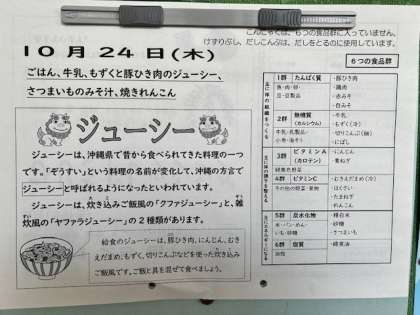 こんにゃくは、もつの食品群に入っていません。
けずりぶし、だしこんぶは、だしをとるのに使用しています。
10月24日(木)
ごはん、牛乳、もずくと豚ひき肉のジューシー、
さつまいものみそ汁、焼きれんこん
ジューシー
ジューシーは、沖縄県で昔から食べられてきた料理の一つ
です。「ぞうすい」という料理の名前が変化して、沖縄の方言で
ジューシーと呼ばれるようになったといわれています。
ジューシーは、炊き込みご飯風の「クファジューシー」と、雑
炊風の「ヤファラジューシー」の2種類があります。
給食のジューシーは、豚ひき肉、にんじん、むき
えだまめ、もずく、切りこんぶなどを使った炊き込み
ご飯風です。ご飯と具を混ぜて食べましょう。
6つの食品群
1群 たんぱく質
魚・肉・卵・
豆・豆製品
・豚ひき肉
・鶏肉
・赤みそ
・白みそ
2群 無機質
(カルシウム)
牛乳・乳製品・
小魚・海そう
・牛乳
・もずく(冷)
・切りこんぶ(細)
・にぼし
3群 ビタミンA
(カロテン)
緑黄色野菜
・にんじん
・青ねぎ
4群 ビタミンC
その他の野菜・果物
・むきえだまめ(冷)
・はくさい
・たまねぎ
・れんこん
5群 炭水化物
米・パン・めん・
いも・砂糖
・精白米
・砂糖
・さつまいも
6群 脂質
油脂
・綿実油